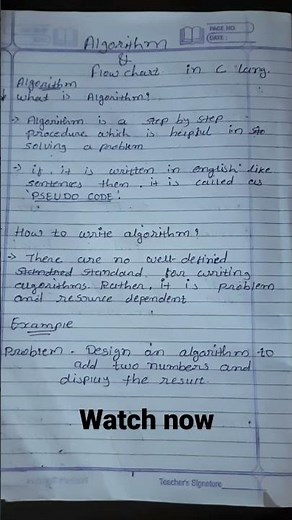 PAGE NO:
DATE:
Algorithm
&
Flow chart in C lang.
Algorithm
what is Algorithm?
→ Algorithm is a step by step
procedure which is helpful in
solving a problem
→ if, it is written in english like
sentences then, it is called as
'PSEUDO CODE'.
How to write algorithm?
→ There are no well-defined
Standard for writing
algorithms. Rather, it is problem
and resource dependent
Example
Problem - Design an algorithm to
add two numbers and
display the result
Watch now
Teacher's Signature